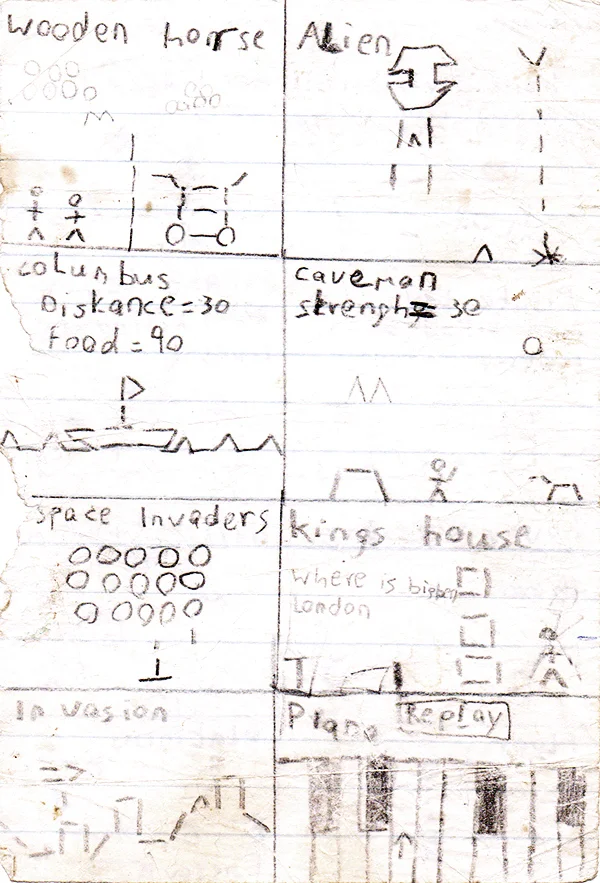 Wooden horse
Alien
columbus
Diskance=30
Food=90
caveman
strength= 30
space Invaders
kings house
where is bigben
London
Invasion
Piano Replay